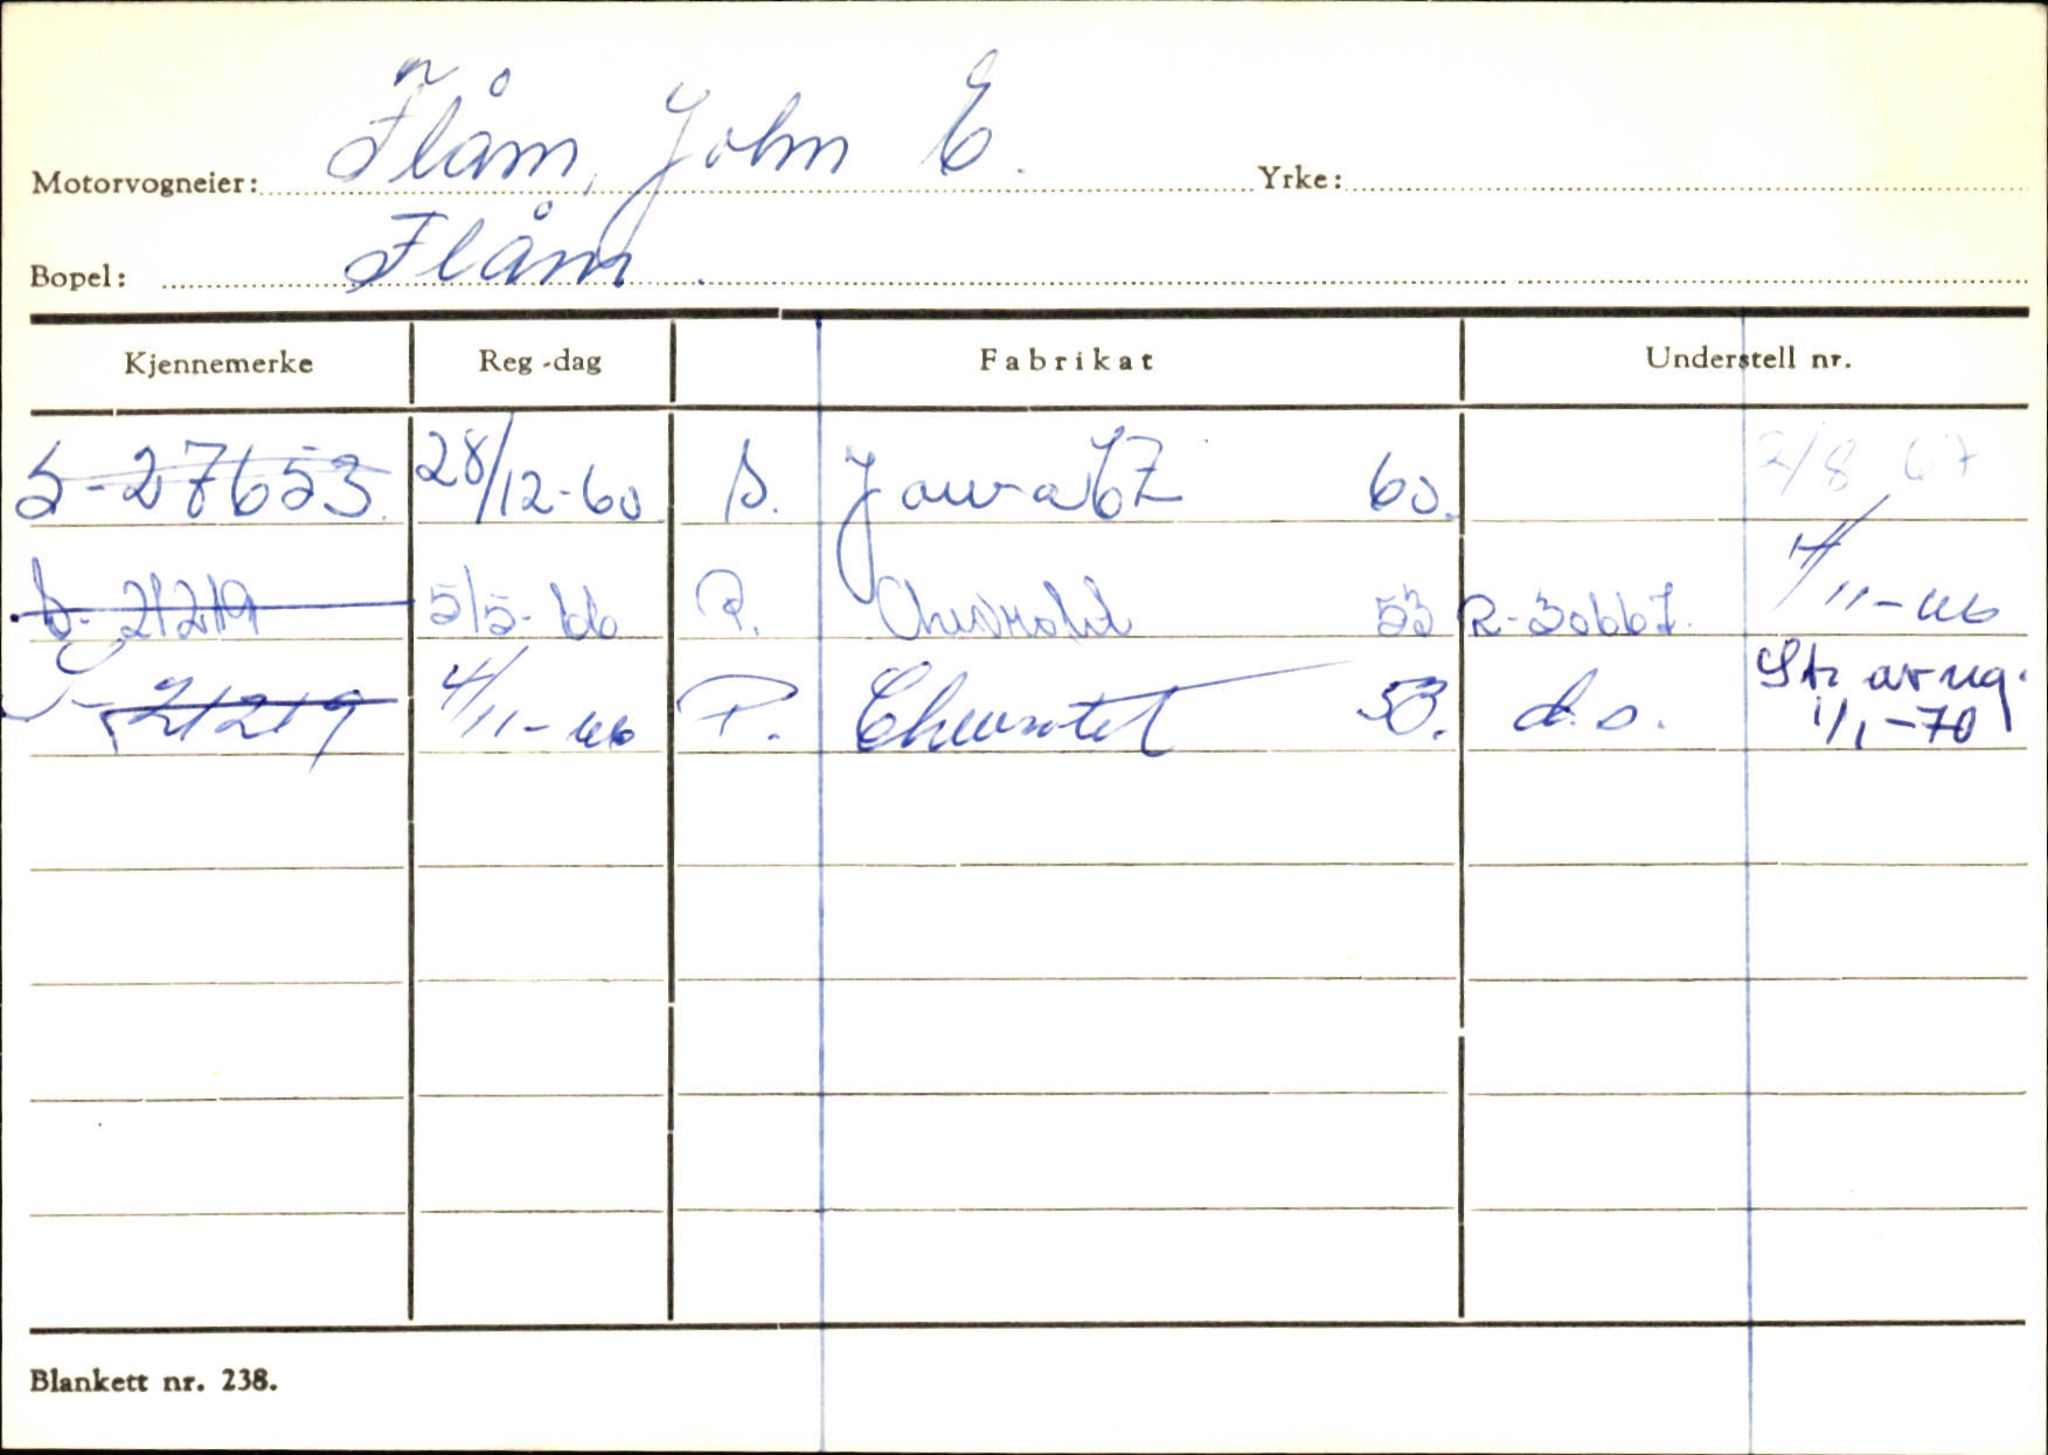 Motorvogneier: Flåm, John E. Yrke:
Bopel: Flåm.
Kjennemerke Reg-dag Fabrikat Understell nr.
S-27653. 28/12-60 S. Jawa CZ 60. 2/8 67
S-21219 5/5-66 P. Chevrolet 53 R-30667. 4/11-66
S-21219 4/11-66 P. Chevrolet 53. d.o. Str av reg. 1/1-70
Blankett nr. 238.